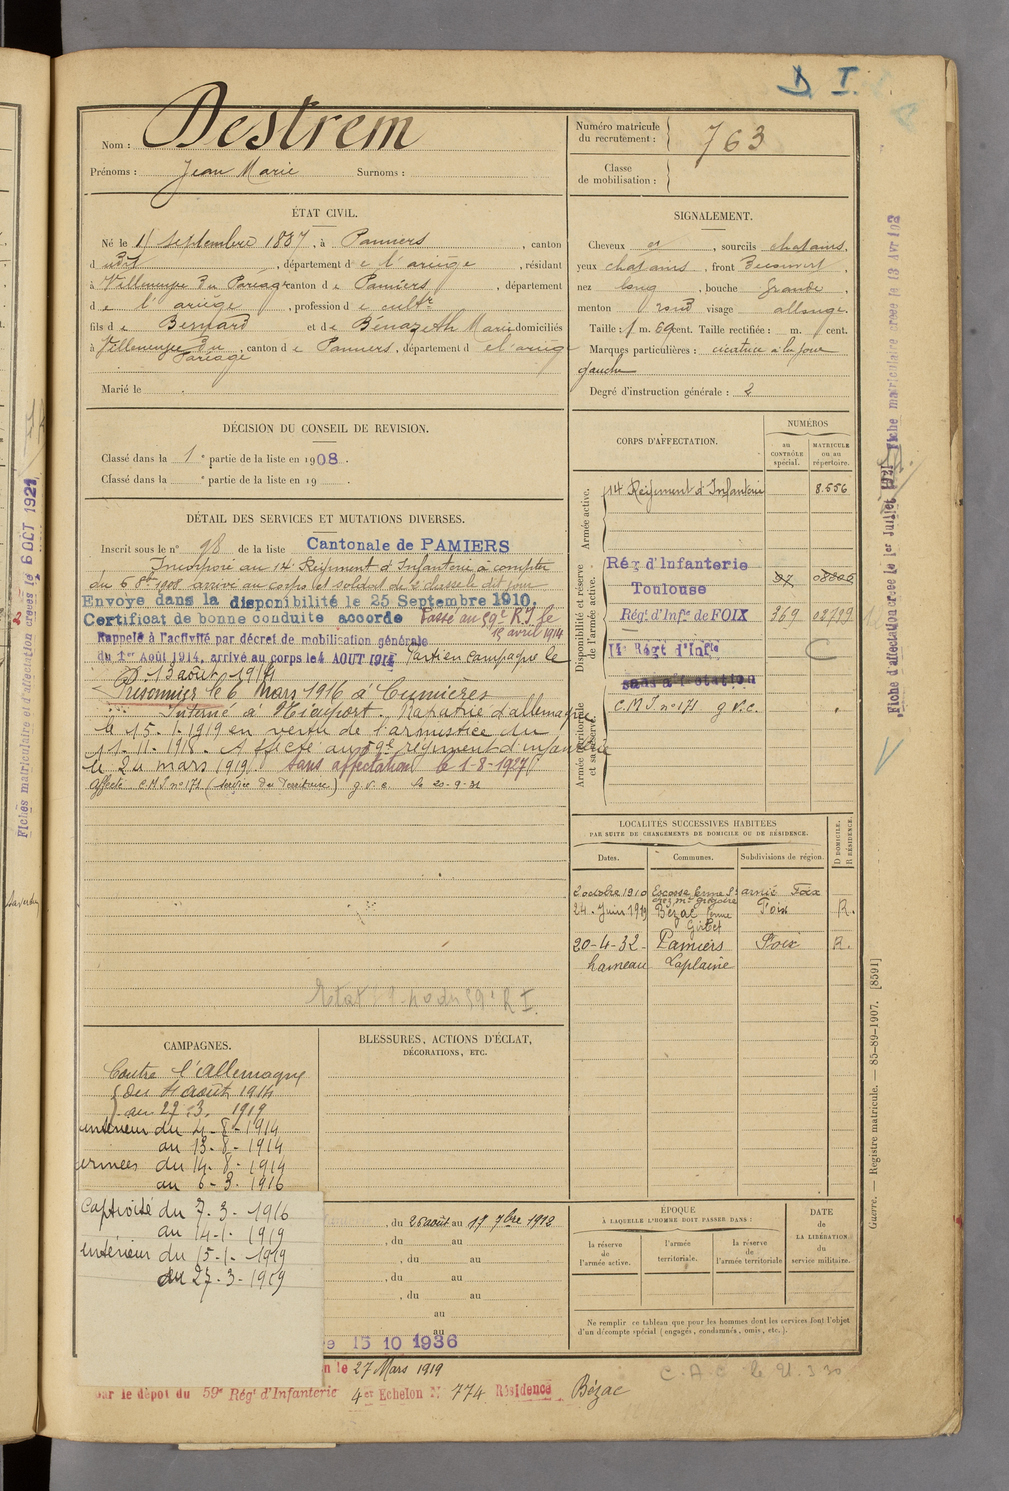 D I.
Nom : Destrem
Prénoms : Jean Marie Surnoms :
Numéro matricule du recrutement : 763
Classe de mobilisation :
ÉTAT CIVIL.
Né le 11 septembre 1887, à Pamiers, canton
dudit, département de l'ariège, résidant
à Villeneuve du Paréage canton de Pamiers, département
de l'ariège, profession de cultr
fils de Bernard et de Benazeth Marie domiciliés
à Villeneuve du Pareage, canton de Pamiers, département de l'ariège
Marié le
SIGNALEMENT.
Cheveux et, sourcils chatains,
yeux chatains, front Decouvert,
nez long, bouche Grande,
menton rond visage allongé.
Taille : 1 m. 69 cent. Taille rectifiée : m. cent.
Marques particulières : cicatrice à la joue
gauche
Degré d'instruction générale : 2
DÉCISION DU CONSEIL DE REVISION.
Classé dans la 1e partie de la liste en 1908.
Classé dans la e partie de la liste en 19 .
DÉTAIL DES SERVICES ET MUTATIONS DIVERSES.
Inscrit sous le n° 98 de la liste Cantonale de PAMIERS
Incorporé au 14e Régiment d'Infanterie à compter
du 6 8bre 1908 arrivé au corps et soldat de 2e classe le dit jour
Envoyé dans la disponibilité le 25 Septembre 1910.
Certificat de bonne conduite accordé Passé au 59e R.I. le
15 avril 1914
Rappelé à l'activité par décret de mobilisation générale
du 1er Août 1914, arrivé au corps le 4 AOUT 1914 Parti en campagne le
13 août 1914
Prisonnier le 6 Mars 1916 à Cumières
Interné à Rapatrié d'allemagne
le 15-1-1919 en vertu de l'armistice du
11-11-1918. Affecté au 59e régiment d'infanterie
le 24 mars 1919. Sans affectation le 1-8-1927
Affecté C.M.I n° 171 (service du Territoire) g.v.c. le 20-9-31
Etat 59e R I.
CORPS D'AFFECTATION.
NUMÉROS
au CONTRÔLE spécial.
MATRICULE ou au répertoire.
Armée active.
14e Régiment d'Infanterie 8.556
Disponibilité et réserve de l'armée active.
Rég. d'Infanterie
Toulouse 97
Régt d'Infie de FOIX 369 02709
Régt d'Infie C
Armée territoriale et sa réserve.
sans affectation
C.M.I. n° 171 g.v.c.
LOCALITÉS SUCCESSIVES HABITÉES
PAR SUITE DE CHANGEMENTS DE DOMICILE OU DE RÉSIDENCE.
Dates. Communes. Subdivisions de région. D DOMICILE. R RÉSIDENCE.
2 octobre 1910 Escosse ferme St arnié Foix
chez Mr Grégoire
24. Juin 1919 Bézac ferme Foix R.
20-4-32- Pamiers Foix R.
hameau Laplaine
CAMPAGNES.
Contre l'allemagne
du 4 août 1914
au 27.3. 1919
intérieur du 4-8-1914
au 13-8-1914
armées du 14-8-1914
au 6-3-1916
Captivité du 7-3-1916
au 14-1-1919
intérieur du 15-1-1919
au 27-3-1919
BLESSURES, ACTIONS D'ÉCLAT,
DÉCORATIONS, ETC.
, du 26 août au 17 7bre 1912
, du au
, du au
, du au
, du au
au
au
15 10 1936
ÉPOQUE
À LAQUELLE L'HOMME DOIT PASSER DANS :
la réserve de l'armée active.
l'armée territoriale.
la réserve de l'armée territoriale
DATE de LA LIBÉRATION du service militaire.
Ne remplir ce tableau que pour les hommes dont les services font l'objet
d'un décompte spécial (engagés, condamnés, omis, etc.).
n le 27 Mars 1919
par le dépôt du 59e Régt d'Infanterie 4er Echelon N° 774 Résidence Bézac
C.A.C.
Guerre. — Registre matricule. — 85-89-1907. [8591]
Fiche d'affectation créée le 1er Juillet 1921
Fiche matriculaire créée le 13 Avr 192
Fiches matriculaire et d'affectation créées le 6 OCT 1921